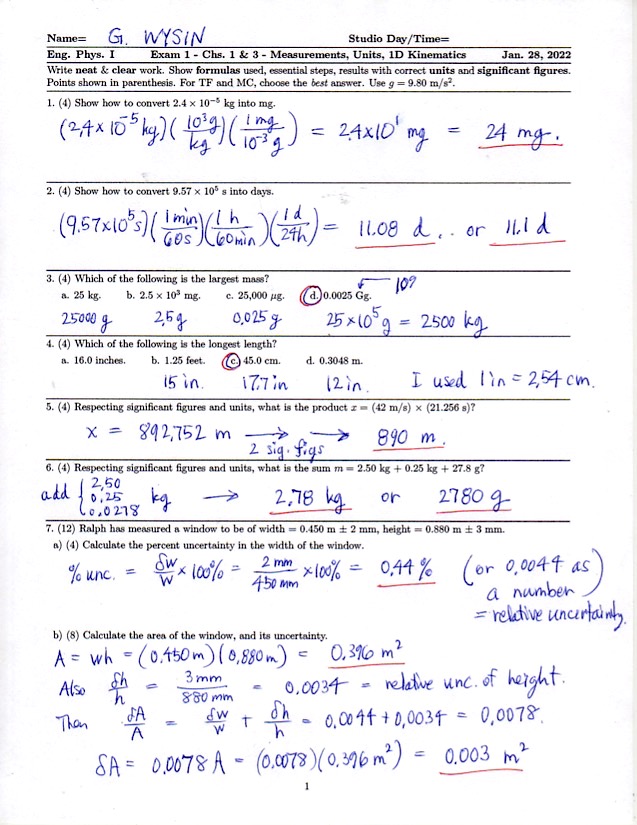 Name= G. WYSIN Studio Day/Time=
Eng. Phys. I Exam 1 - Chs. 1 & 3 - Measurements, Units, 1D Kinematics Jan. 28, 2022
Write neat & clear work. Show formulas used, essential steps, results with correct units and significant figures.
Points shown in parenthesis. For TF and MC, choose the best answer. Use g = 9.80 m/s².
1. (4) Show how to convert 2.4 × 10⁻⁵ kg into mg.
(2.4 × 10⁻⁵ kg)(10³g/kg)(1 mg/10⁻³ g) = 2.4×10¹ mg = 24 mg.
2. (4) Show how to convert 9.57 × 10⁵ s into days.
(9.57×10⁵s)(1 min/60s)(1 h/60min)(1 d/24h) = 11.08 d .. or 11.1 d
3. (4) Which of the following is the largest mass?
a. 25 kg. b. 2.5 × 10³ mg. c. 25,000 μg. d. 0.0025 Gg. ← 10⁹
25000 g 2.5 g 0.025 g 25×10⁵ g = 2500 kg
4. (4) Which of the following is the longest length?
a. 16.0 inches. b. 1.25 feet. c. 45.0 cm. d. 0.3048 m.
15 in. 17.7 in 12 in. I used 1 in = 2.54 cm.
5. (4) Respecting significant figures and units, what is the product x = (42 m/s) × (21.256 s)?
x = 892.752 m → → 890 m.
2 sig. figs
6. (4) Respecting significant figures and units, what is the sum m = 2.50 kg + 0.25 kg + 27.8 g?
add { 2.50
0.25 kg → 2.78 kg or 2780 g
0.0278
7. (12) Ralph has measured a window to be of width = 0.450 m ± 2 mm, height = 0.880 m ± 3 mm.
a) (4) Calculate the percent uncertainty in the width of the window.
% unc. = δw/w × 100% = 2 mm/450 mm × 100% = 0.44 % (or 0.0044 as
a number)
= relative uncertainty.
b) (8) Calculate the area of the window, and its uncertainty.
A = wh = (0.450 m)(0.880 m) = 0.396 m²
Also δh/h = 3 mm/880 mm = 0.0034 = relative unc. of height.
Then δA/A = δw/w + δh/h = 0.0044 + 0.0034 = 0.0078.
δA = 0.0078 A = (0.0078)(0.396 m²) = 0.003 m²
1